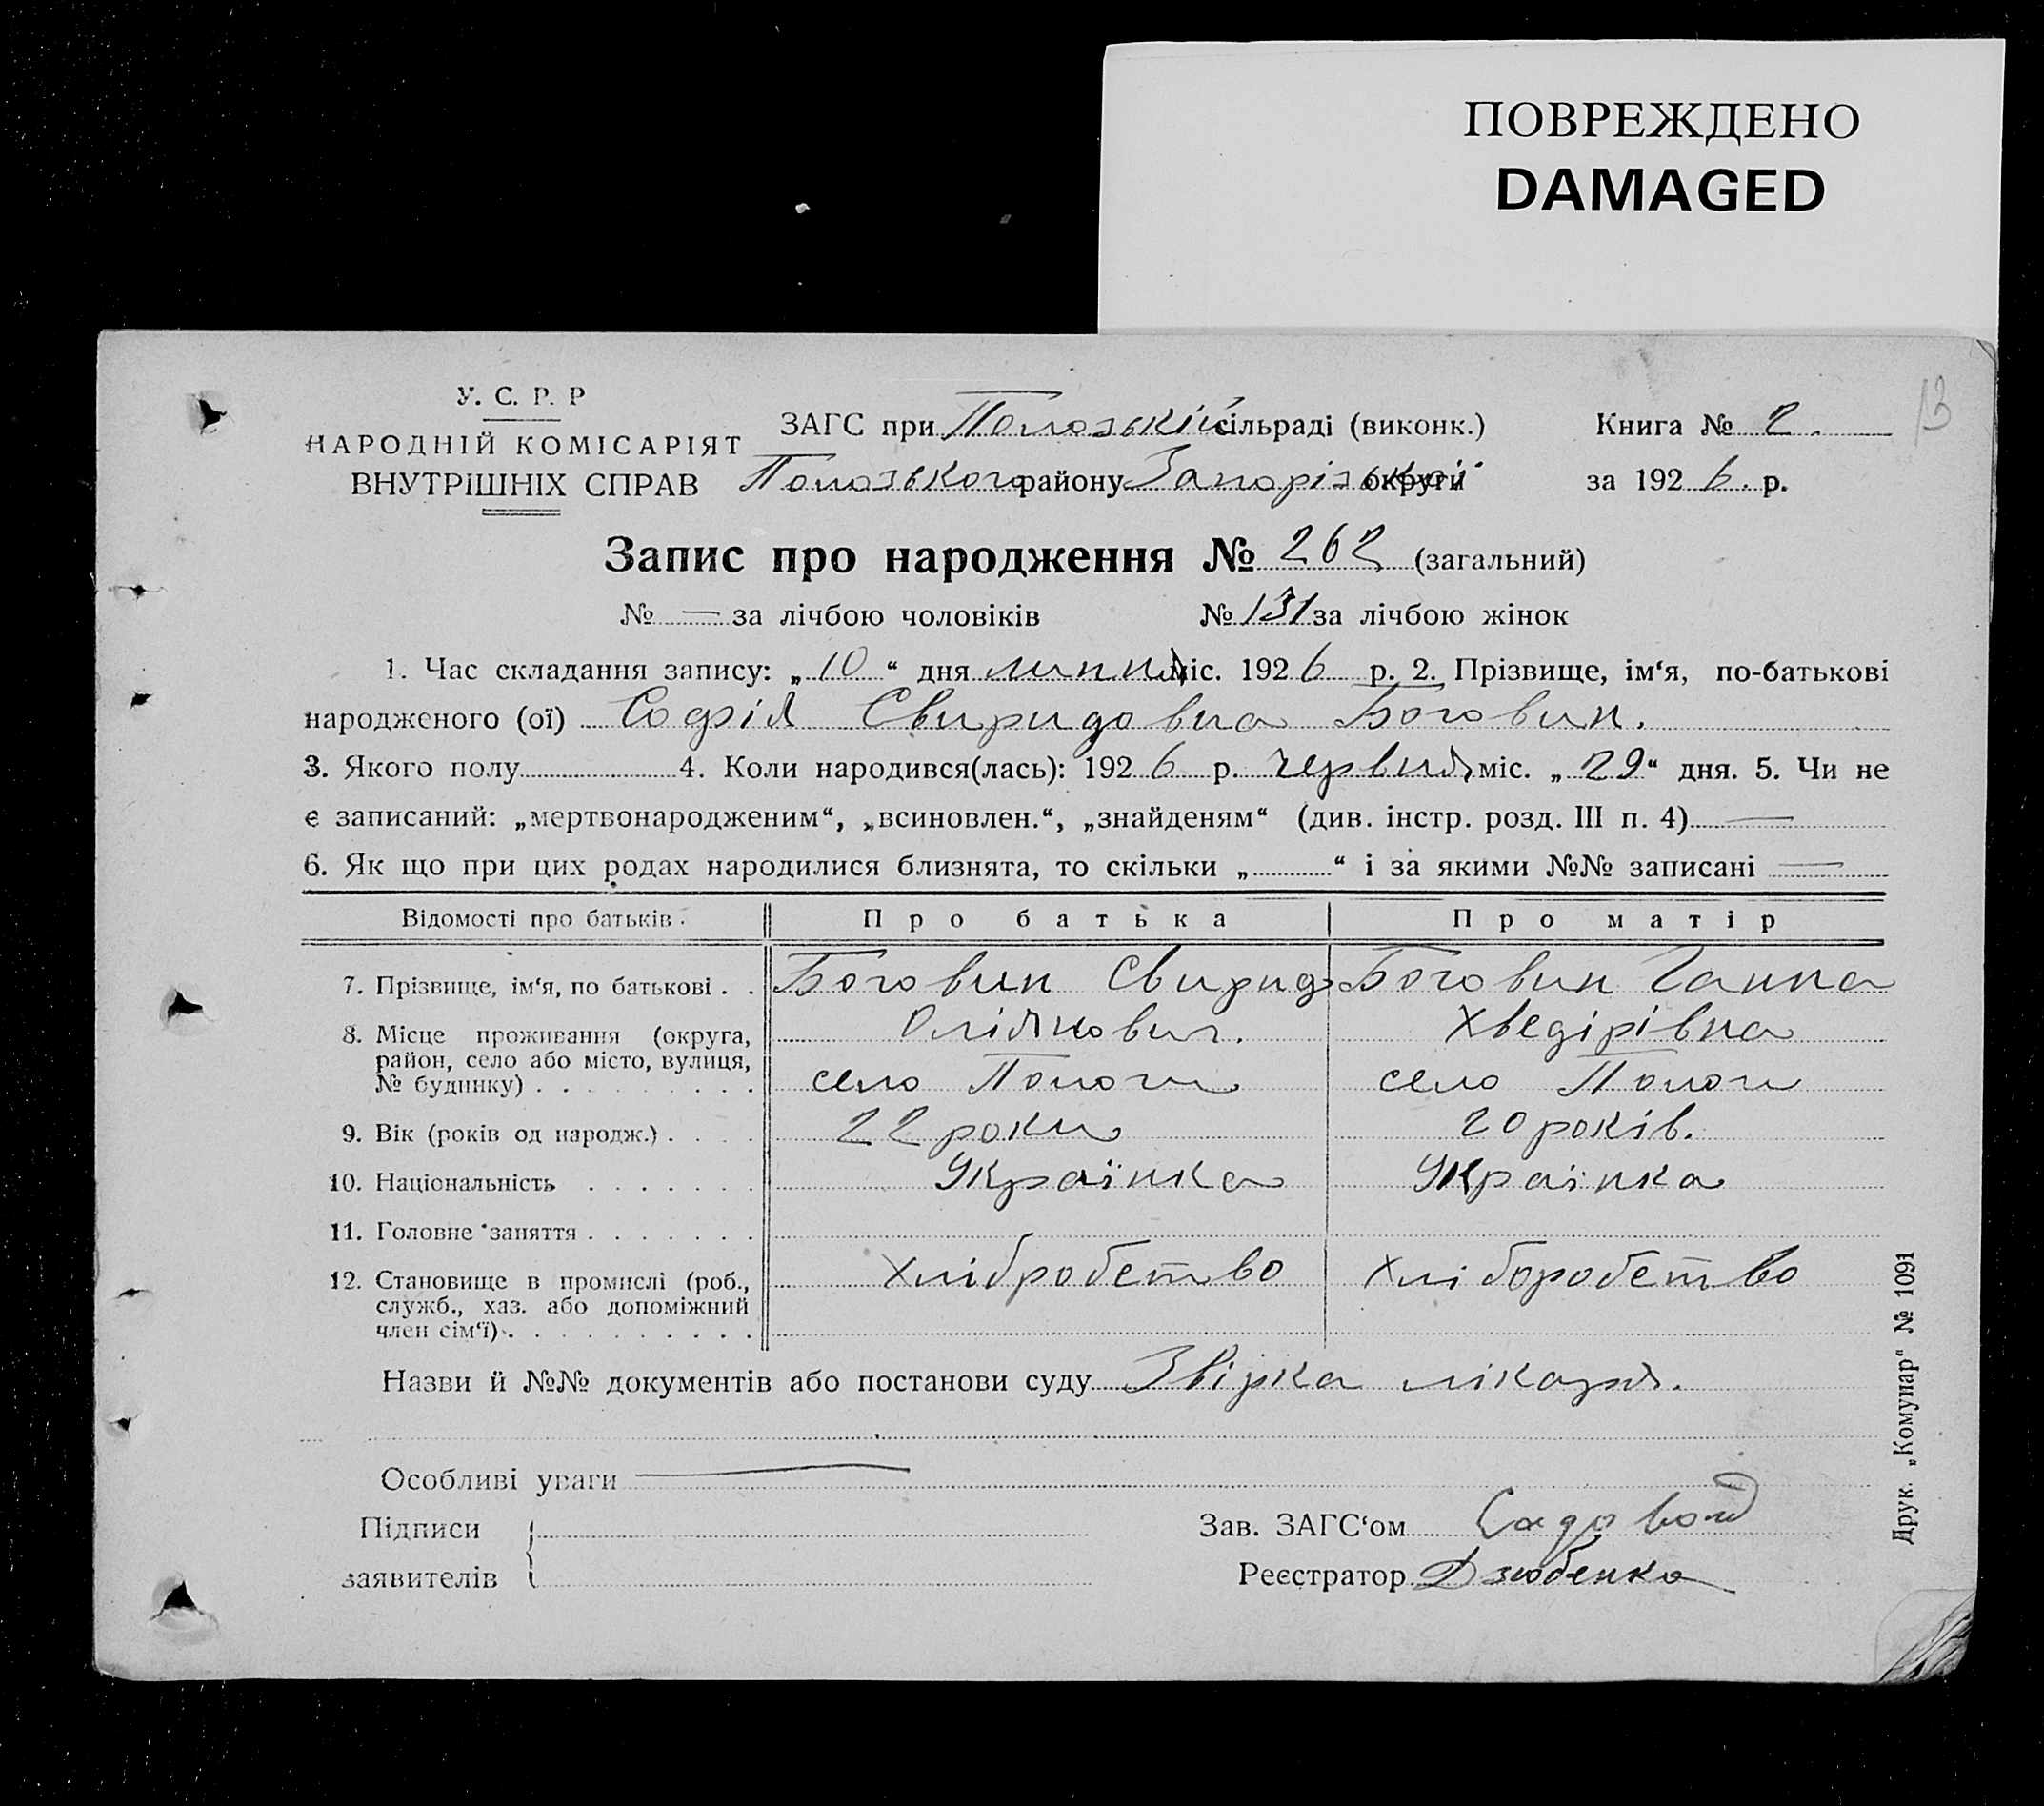 ПОВРЕЖДЕНО
DAMAGED
13
У. С. Р. Р
НАРОДНІЙ КОМІСАРІЯТ
ВНУТРІШНІХ СПРАВ
ЗАГС при Пологській сільраді (виконк.) Книга № 2.
Пологського району Запорізької округи за 1926 р.
Запис про народження № 262 (загальний)
№ — за лічбою чоловіків № 131 за лічбою жінок
1. Час складання запису: „10“ дня липня міс. 1926 р. 2. Прізвище, ім‘я, по-батькові
народженого (ої) Софія Свиридовна Боговин.
3. Якого полу 4. Коли народився(лась): 1926 р. червня міс. „29“ дня. 5. Чи не
є записаний: „мертвонародженим“, „всиновлен.“, „знайденям“ (див. інстр. розд. III п. 4) —
6. Як що при цих родах народилися близнята, то скільки „ “ і за якими №№ записані —
Відомості про батьків. Про батька Про матір
7. Прізвище, ім‘я, по батькові . . Боговин Свирид Боговин Ганна
8. Місце проживання (округа, Хведірівна
район, село або місто, вулиця,
№ будинку) . . . . . . . . . село Пологи село Пологи
9. Вік (років од народж.) . . . . 22 роки 20 років.
10. Національність . . . . . . . Українка Українка
11. Головне заняття . . . . . . .
12. Становище в промислі (роб., Хлібробство Хліборобство
служб., хаз. або допоміжний
член сім‘ї) . . . . . . . . . .
Назви й №№ документів або постанови суду Звірка лікаря.
Особливі уваги —
Підписи
заявителів
Зав. ЗАГС‘ом
Реєстратор Дзюбенко
Друк. „Комунар“ № 1091